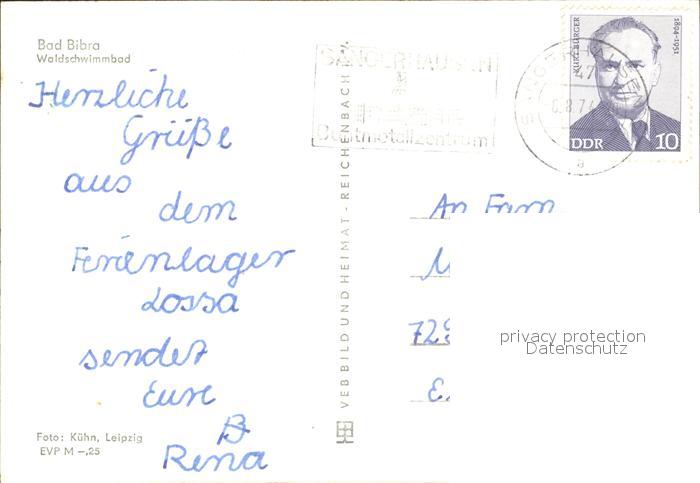 Bad Bibra
Waldschwimmbad
Herzliche
Grüße
aus
dem
Ferienlager
Lossa
sendet
Eure
Rena
Foto: Kühn, Leipzig
EVP M –,25
VEB BILD UND HEIMAT · REICHENBACH
SANGERHAUSEN
47
6.8.74
a
KURT BÜRGER
1894-1951
DDR 10
An Fam.
privacy protection
Datenschutz